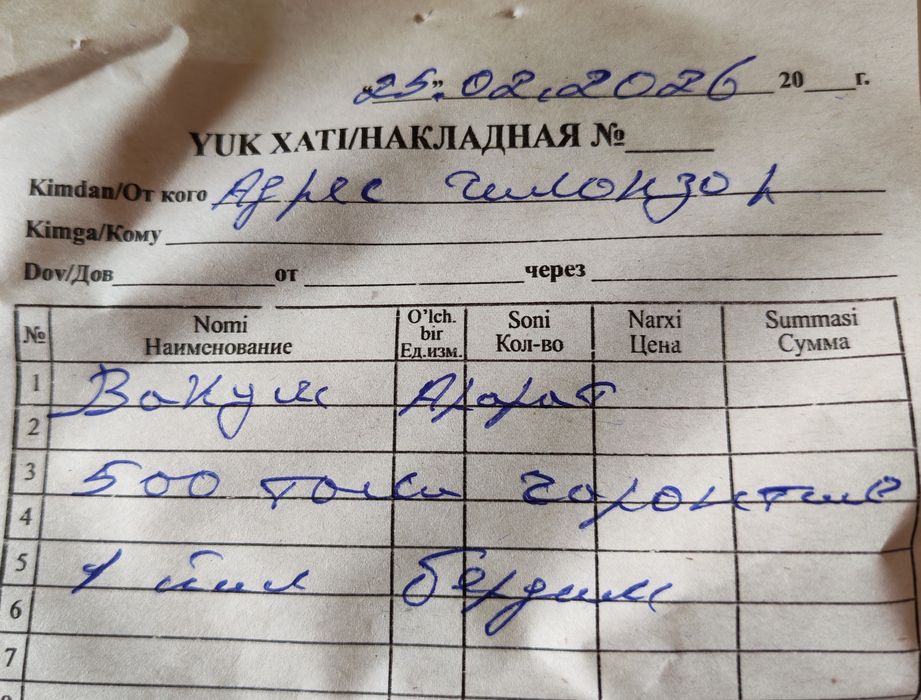 "25." 02.2026 20___г.
YUK XATI/НАКЛАДНАЯ №_____
Kimdan/От кого Адрес чилонзор
Kimga/Кому
Dov/Дов________от ________через________
№ Nomi Наименование O'lch. bir Ед.изм. Soni Кол-во Narxi Цена Summasi Сумма
1 Вакум Арарат
2
3 500 талси горонтие
4
5 1 йил бердим
6
7